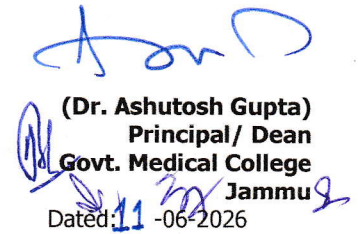 (Dr. Ashutosh Gupta)
Principal/ Dean
Govt. Medical College
Jammu
Dated:11 -06-2026